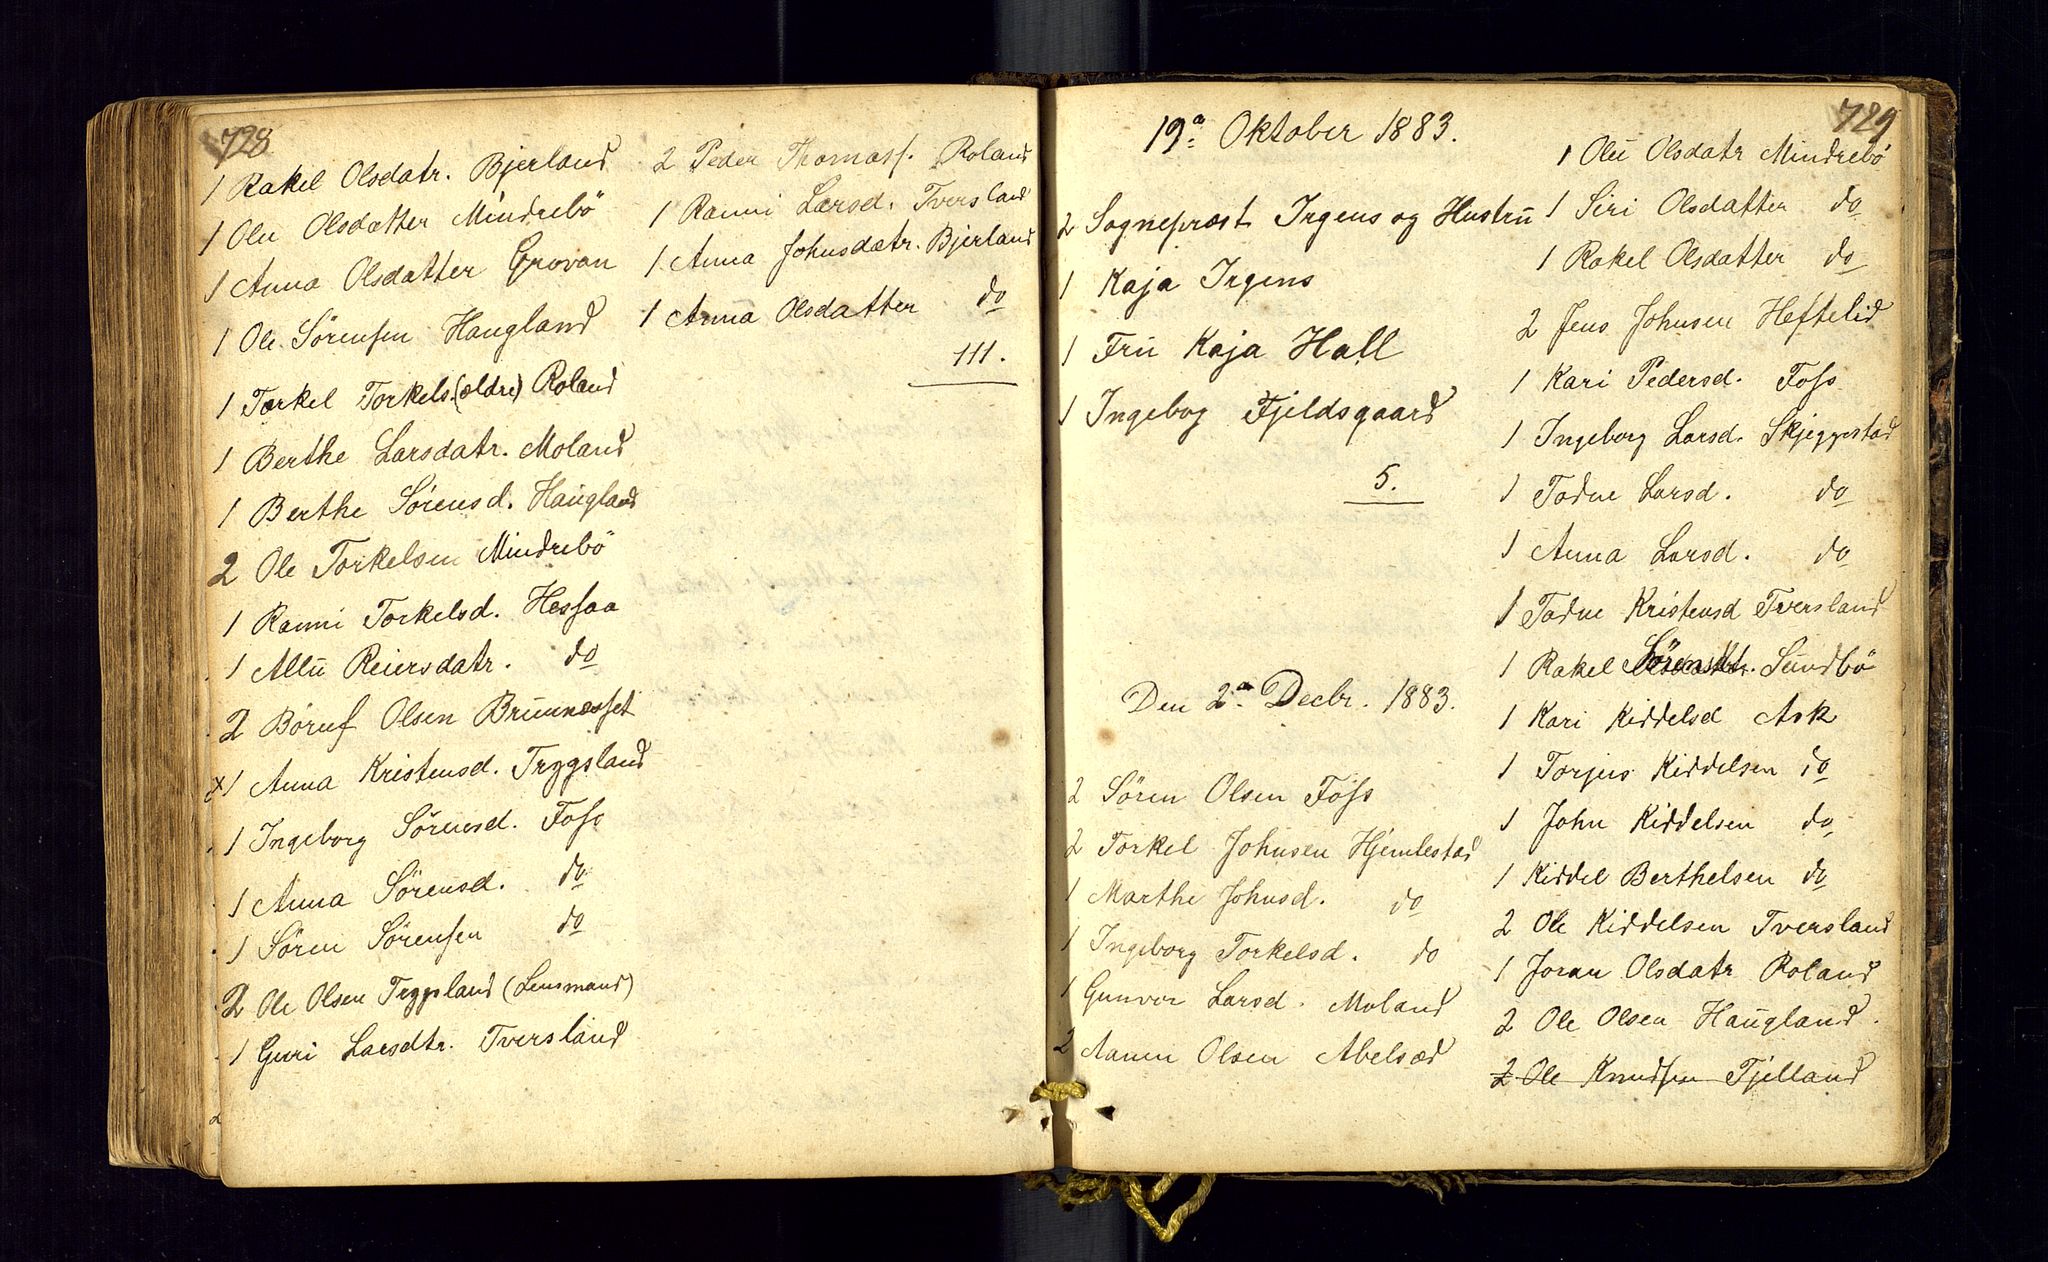 728
1 Rakel Olsdatr. Bjerland
1 Olu Olsdatter Mindrebö
1 Anna Olsdatter Grovan
1 Ole Sörensen Haugland
1 Torkel Torkels. (ældre) Roland
1 Berthe Larsdatr. Moland
1 Berthe Sörensd. Haugland
2 Ole Torkelsen Mindrebö
1 Ranni Torkelsd. Hessaa
1 Allu Reiersdatr. do
2 Böruf Olsen Brunnæsset
x1 Anna Kristensd. Tryggsland
1 Ingeborg Sörensd. Foss
1 Anna Sörensd. do
1 Sören Sörensen do
2 Ole Olsen Tryggsland (Lensmand)
1 Guri Larsdtr. Tversland
2 Peder Thomass. Roland
1 Ranni Larsd. Tversland
1 Anna Johnsdatr. Bjerland
1 Anna Olsdatter do
111.
729
19a Oktober 1883.
2 Sognepræst Irgens og Hustru
1 Kaja Irgens
1 Fru Kaja Hall
1 Ingebog Fjeldsgaard
5.
Den 2a Decbr. 1883.
2 Sören Olsen Foss
2 Torkel Johnsen Hjemlestad
1 Marthe Johnsd. do
1 Ingeborg Torkelsd. do
1 Gunvor Larsd. Moland
2 Aanen Olsen Abelsæd
1 Olu Olsdatr Mindrebö
1 Siri Olsdatter do
1 Rakel Olsdatter do
2 Jens Johnsen Heftelid
1 Kari Pedersd. Foss
1 Ingeborg Larsd. Skjeggestad
1 Tadne Larsd. do
1 Anna Larsd. do
1 Tadne Kristensd Tversland
1 Rakel Sörensdtr. Sundbö
1 Kari Kiddelsd Ask
1 Torjus Kiddelsen do
1 John Kiddelsen do
1 Kiddel Berthelsen do
2 Ole Kiddelsen Tversland
1 Joran Olsdatr Roland
2 Ole Olsen Haugland.
2 Ole Knudsen Tjelland